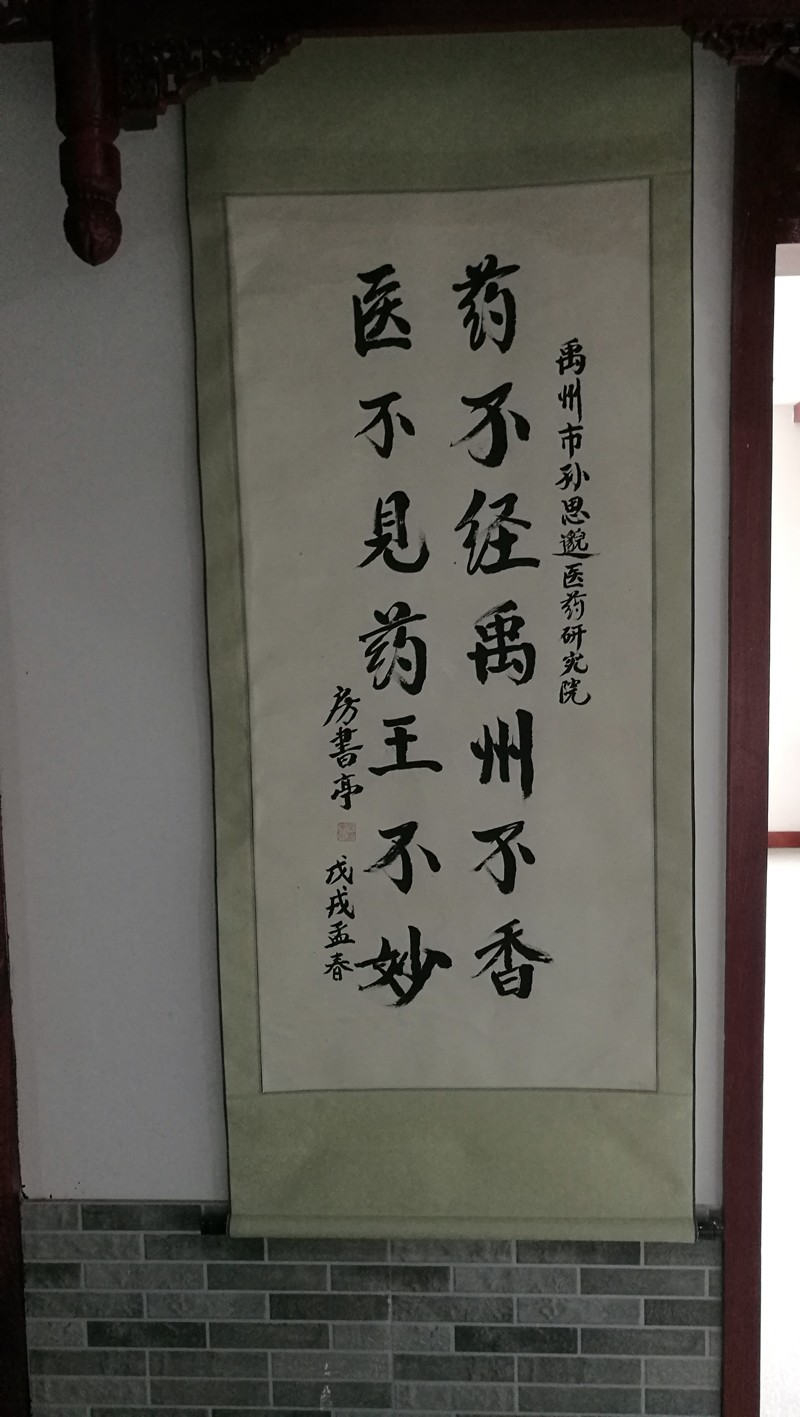 禹州市孙思邈医药研究院
药不经禹州不香
医不见药王不妙
房書亭
戊戌孟春